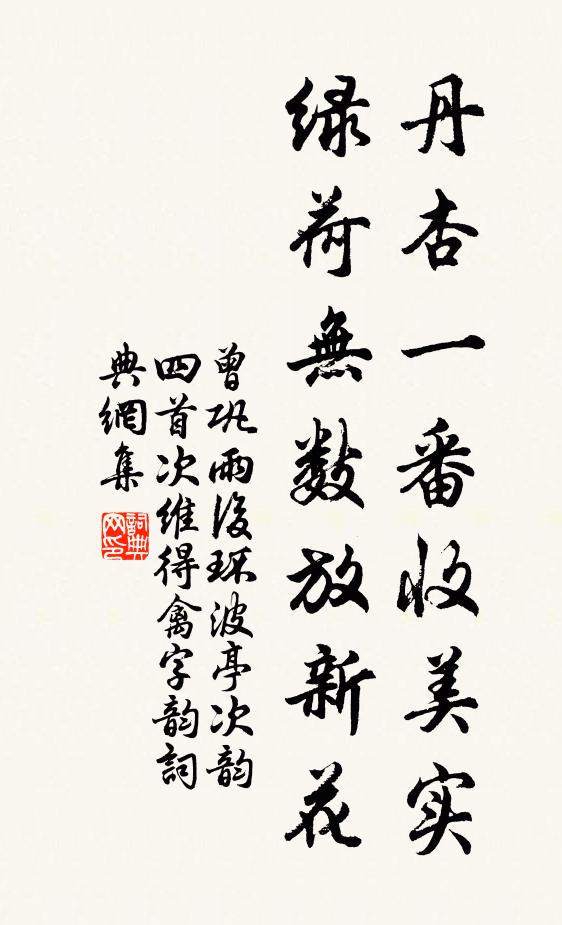 丹杏一番收美实
绿荷無數放新花
曾巩雨後环波亭次韵
四首次維得禽字韵詞
典網集
詞典网印